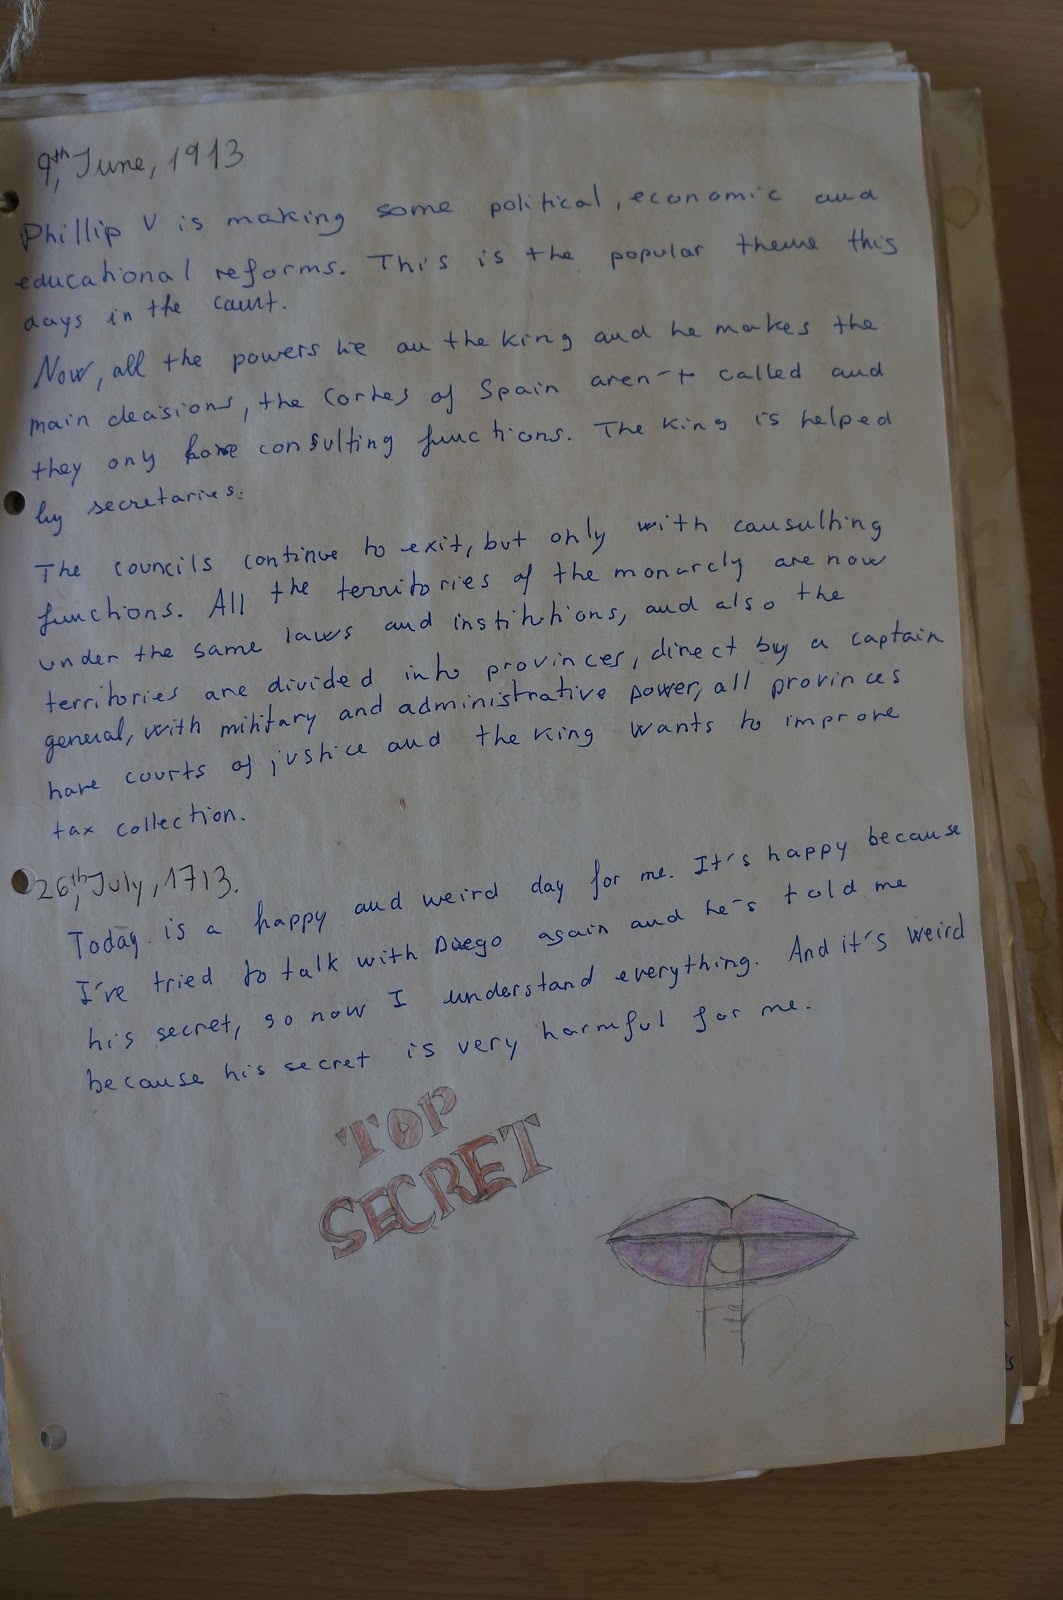 9th, June, 1913
Phillip V is making some political, economic and
educational reforms. This is the popular theme this
days in the court.
Now, all the powers lie on the king and he makes the
main decisions, the Cortes of Spain aren't called and
they only have consulting functions. The king is helped
by secretaries.
The councils continue to exit, but only with consulting
functions. All the territories of the monarcly are now
under the same laws and institutions, and also the
territories are divided into provinces, direct by a captain
general, with military and administrative power, all provinces
have courts of justice and the king wants to improve
tax collection.
26th, July, 1713.
Today is a happy and weird day for me. It's happy because
I've tried to talk with Diego again and he's told me
his secret, so now I understand everything. And it's weird
because his secret is very harmful for me.
TOP
SECRET